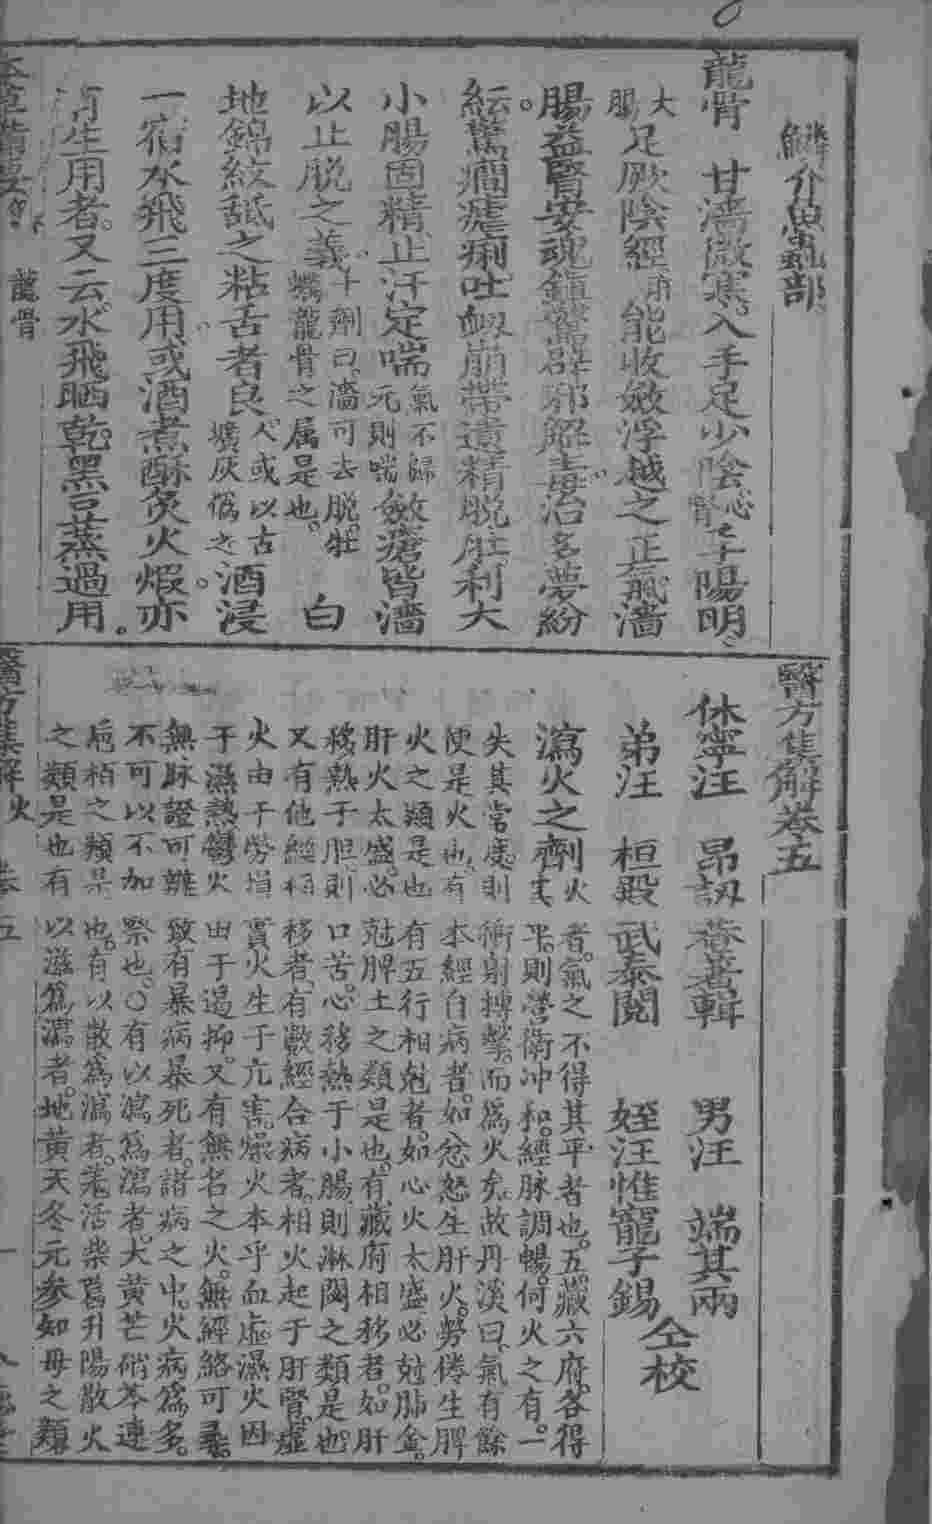 鱗介魚蟲部
龍骨 甘濇微寒入手足少陰心腎手陽明
大腸足厥陰經肝能收斂浮越之正氣濇
腸益腎安魂鎮驚辟邪解毒治多夢紛
紜驚癇瘧痢吐衄崩帶遺精脫肛利大
小腸固精止汗定喘氣不歸元則喘斂瘡皆濇
以止脫之義十劑曰濇可去脫牡蠣龍骨之属是也 白
地錦紋舐之粘舌者良人或以古壙灰偽之酒浸
一宿水飛三度用或酒煮酥炙火煆亦
有生用者又云水飛晒乾黑豆蒸過用
本草備要 龍骨
醫方集解卷五
休寧汪 昂訒菴著輯 男汪 端其兩
弟汪 桓殿武泰閱 姪汪惟寵子錫 仝校
瀉火之劑火者氣之不得其平者也五藏六府各得
其平則營衛冲和經脉調暢何火之有一
失其常度則衝射搏擊而為火矣故丹溪曰氣有餘
便是火也有本經自病者如忿怒生肝火勞倦生脾
火之類是也有五行相尅者如心火太盛必尅肺金
肝火太盛必尅脾土之類是也有藏府相移者如肝
移熱于胆則口苦心移熱于小腸則淋閟之類是也
又有他經相移者有數經合病者相火起于肝腎虛
火由于勞損實火生于亢害燥火本乎血虛濕火因
于濕熱鬱火由于遏抑又有無名之火無經絡可尋
無脉證可辨致有暴病暴死者諸病之中火病為多
不可以不加察也○有以瀉為瀉者大黄芒硝芩連
梔栢之類是也有以散為瀉者羌活柴胡升陽散火
之類是也有以滋為瀉者地黄天冬元参知母之類
醫方集解 火 卷五 一